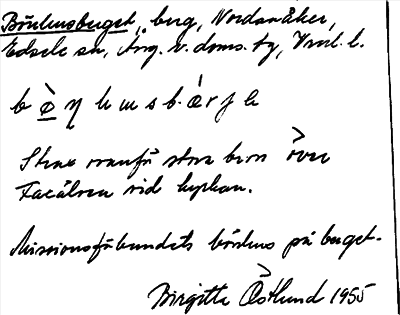 Bönhusberget, berg, Nordsnåker,
Edsele sn, Ång. v. doms. tg, Vnrl. l.
Strax ovanför stora bron över
Faxälven vid kyrkan.
Missionsförbundets bönhus på berget.
Birgitta Östlund 1955